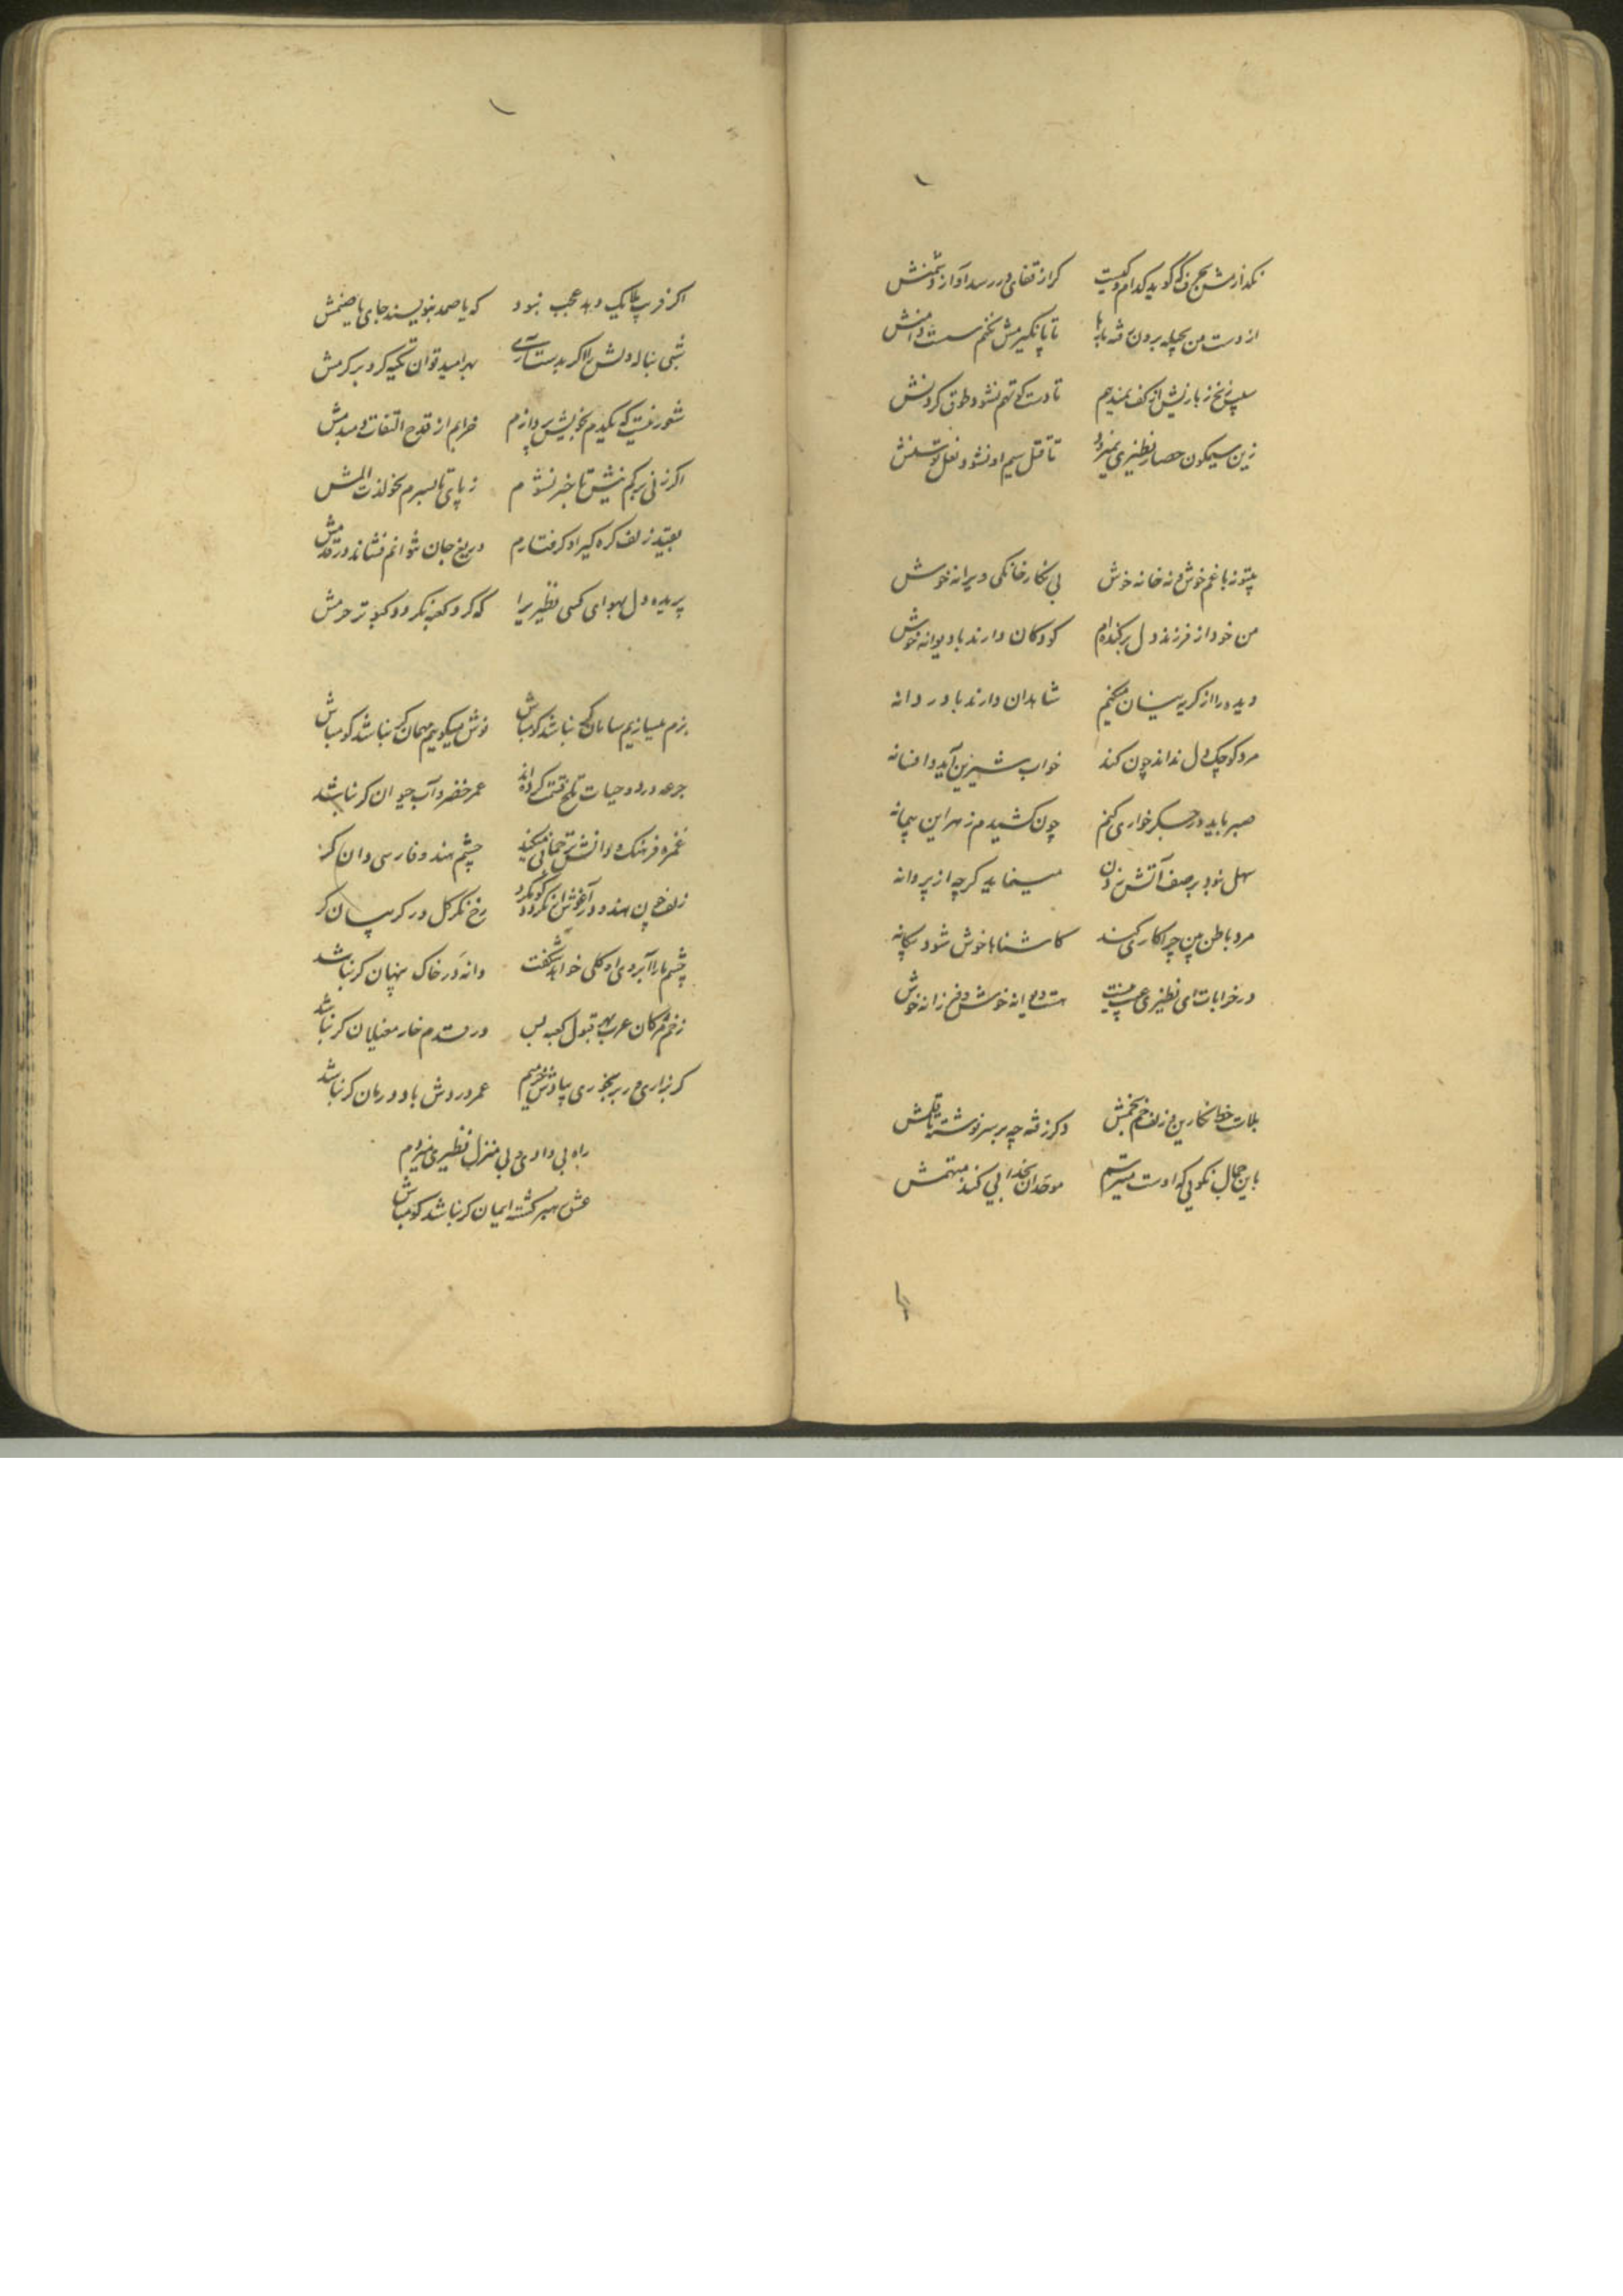 نکذارمش بحرف که گوید کدام و کیست کز از قفای در رسد آواز دشمنش
از دست من بحیله برون رفته بارها تا پا نگیرمش نکنم سست دامنش
سیب زنخ ز بازیش از کف نمیدهم تا دست کوتهم نشود طوق گردنش
زین سیمگون حصار نظیری نمیرود تا قتل سیم او نشود نعل توسنش
بیتو نه باغم خوش و نه خانه خوش بی نکار خانکی ویرانه خوش
من خود از فرزند و دل برکنده‌ام کودکان دارند با دیوانه خوش
دیده را از کریه نیسان میکنم شاهدان دارند با دردانه
مرد کوچک دل نداند چون کند خواب شیرین آید و افسانه
صبر باید در جگر خواری کنم چون کشیدم زهر این پیمانه
سهل نبود بر صف آتش زدن مینماید کرچه از پروانه
مرد باطن بین چرا کاری کند کاشناها خوش شود بیکانه
در خرابات ای نظیری عیب نیست هست دیوانه خوش و فرزانه خوش
بلاست خط نکارین و زلف خم بخمش دکر زفته چه بر سر نوشته تا قلمش
باین جمال نکویی که اوست میترسم موحدان بخدایی کنند متهمش
اکر فریب ملایک دهد عجب نبود که یا صمد بنویسند جای یا صنمش
شبی بناله دلش را اکر بدست آری بهر امید توان تکیه کرد بر کرمش
شعور نیست که یکدم بخویش پردازم خرابم از قدح التفات دمبدمش
اکر زنی برکم نیش تا خبر نشوم ز پای تا بسرم بخولذت المش
بقید زلف کره کیر او کرفتارم دریغ جان نتوانم فشاند در قدمش
پریده دل بهوای کسی نظیری را که کرد کعبه نکردد کبوتر حرمش
بزم میسازیم سامان کر نباشد کو مباش نوش میکوییم مهمان کر نباشد کو مباش
جرعه درد و حیات تلخ قسمت کرده‌اند عمر خضر و آب حیوان کر نباشد
غمزه فرهنک و دانش ترجمانی میکند چشم هند و فارسی دان کر
زلف چون هندو در آغوش کو نکردد رخ نکر کل در کریبان کر
چشم ما را آبروی او کلی خواهد شکفت دانه در خاک پنهان کر نباشد
زخم مژکان عرب بهر قبول کعبه بس در قدم خار مغیلان کر نباشد
کر بزاری در برنجوری بپادش خرمیم عمر دردش باد درمان کر نباشد
راه بی وادی و بی منزل نظیری میروم
عشق رهبر کشته ایمان کر نباشد کو مباش